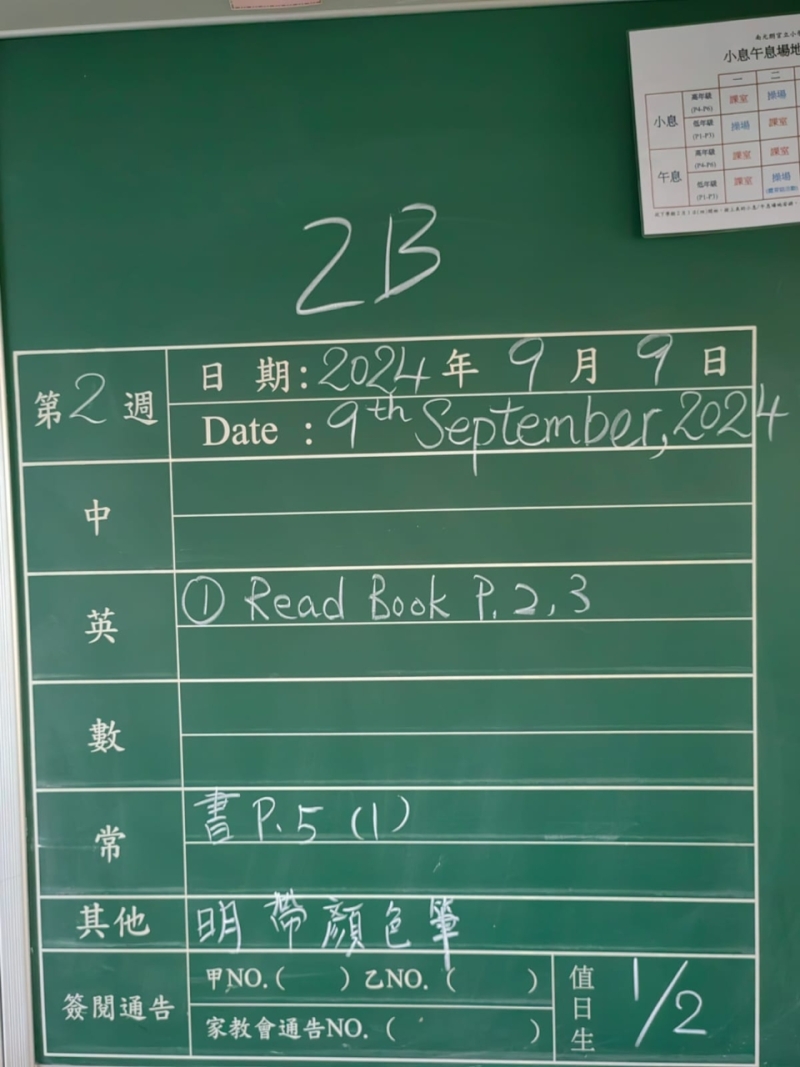 小息午息場地
一 二
小息 高年級 (P4-P6) 課室 操場
低年級 (P1-P3) 操場 課室
午息 高年級 (P4-P6) 課室 課室
低年級 (P1-P3) 課室 操場
2B
第2週 日期:2024年9月9日
Date : 9th September, 2024
中
英 ① Read Book P. 2, 3
數
常 書 P. 5 (1)
其他 明帶顏色筆
簽閱通告 甲NO.( ) 乙NO. ( )
家教會通告NO. ( )
值日生 1/2